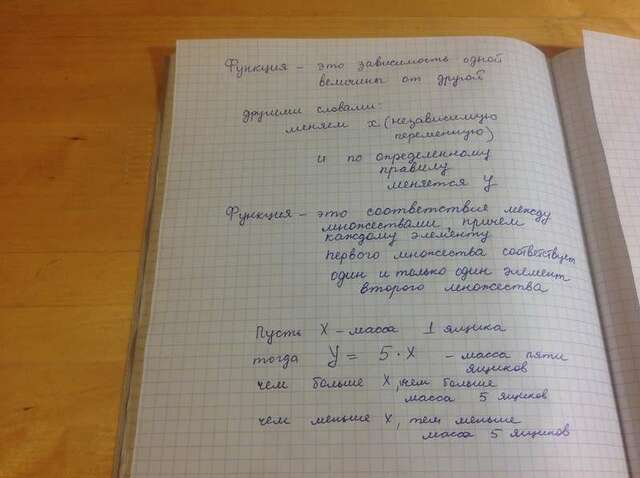 Функция – это зависимость одной
величины от другой
другими словами:
меняем х (независимую
переменную)
и по определенному
правилу
меняется y
Функция – это соответствие между
множествами, причем
каждому элементу
первого множества соответствует
один и только один элемент
второго множества
Пусть X – масса 1 ящика
тогда y = 5·x – масса пяти
ящиков
чем больше X, чем больше
масса 5 ящиков
чем меньше X, тем меньше
масса 5 ящиков